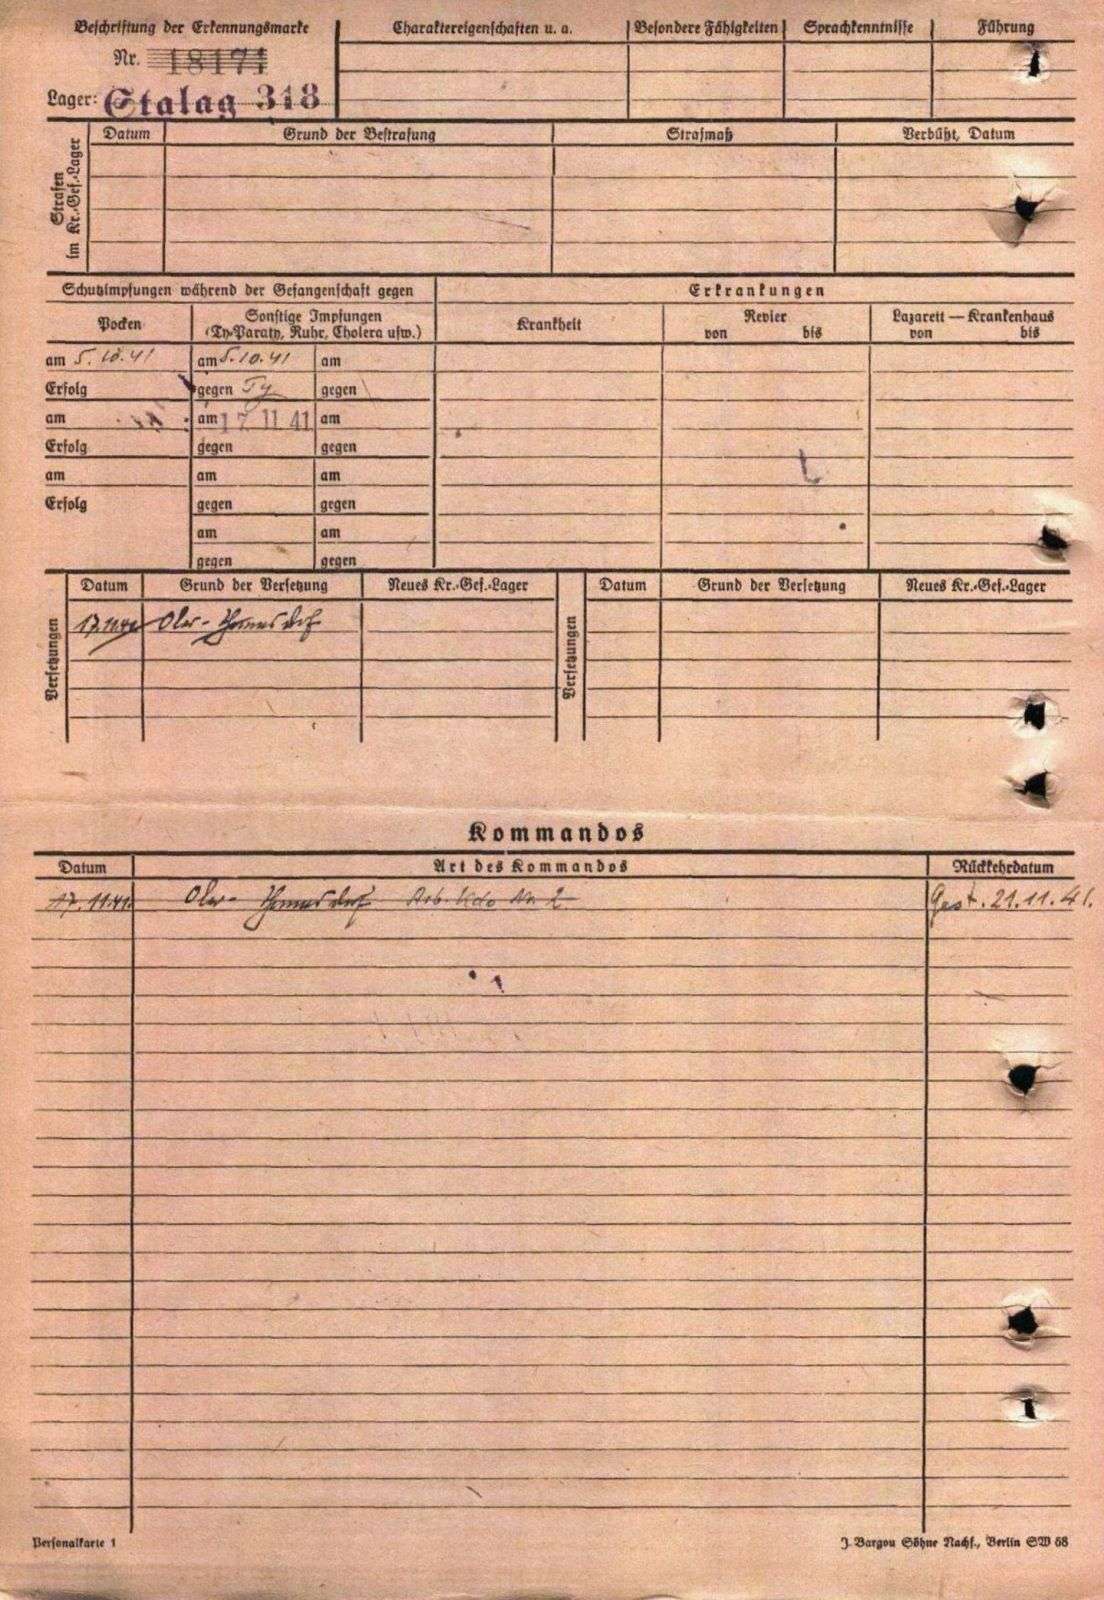 Beschriftung der Erkennungsmarke
Nr. 18171
Lager: Stalag 318
Charaktereigenschaften u. a.
Besondere Fähigkeiten
Sprachkenntnisse
Führung
Strafen im Kr.-Gef.-Lager
Datum
Grund der Bestrafung
Strafmaß
Verbüßt, Datum
Schutzimpfungen während der Gefangenschaft gegen
Erkrankungen
Pocken
Sonstige Impfungen
(Ty-Paraty, Ruhr, Cholera usw.)
Krankheit
Revier
von bis
Lazarett — Krankenhaus
von bis
am 5.10.41 am 5.10.41 am
Erfolg gegen Ty gegen
am am 17 11 41 am
Erfolg gegen gegen
am am am
Erfolg gegen gegen
am am
gegen gegen
Versetzungen
Datum Grund der Versetzung Neues Kr.-Gef.-Lager
17.11.41 Ober-
Versetzungen
Datum Grund der Versetzung Neues Kr.-Gef.-Lager
Kommandos
Datum Art des Kommandos Rückkehrdatum
17.11.41. Ober- Arb. Kdo Nr. 2 Gest. 21.11.41.
Personalkarte 1
J. Bargou Söhne Nachf., Berlin SW 68